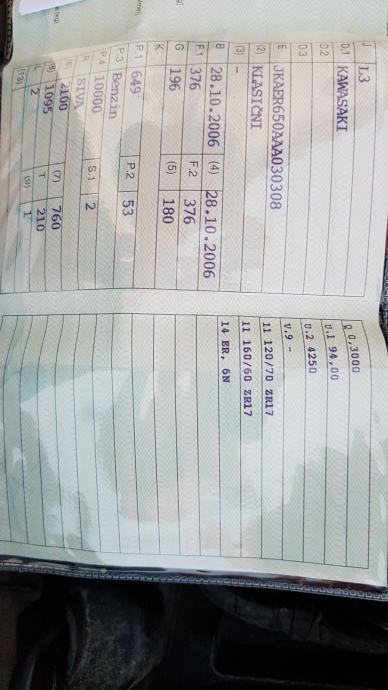 J L3
D.1 KAWASAKI
D.2
D.3
E JKAER650AAA030308
(2) KLASIČNI
(3) -
B 28.10.2006 (4) 28.10.2006
F.1 376 F.2 376
G 196 (5) 180
K
P.1 649 P.2 53
P.3 Benzin
P.4 10000 S.1 2
R SIVA
2100 (7) 760
(8) 1095 T 210
L 2 (9) 1
(13)
Q 0,3000
U.1 94,00
U.2 4250
V.9 -
11 120/70 ZR17
11 160/60 ZR17
14 ER, 6N